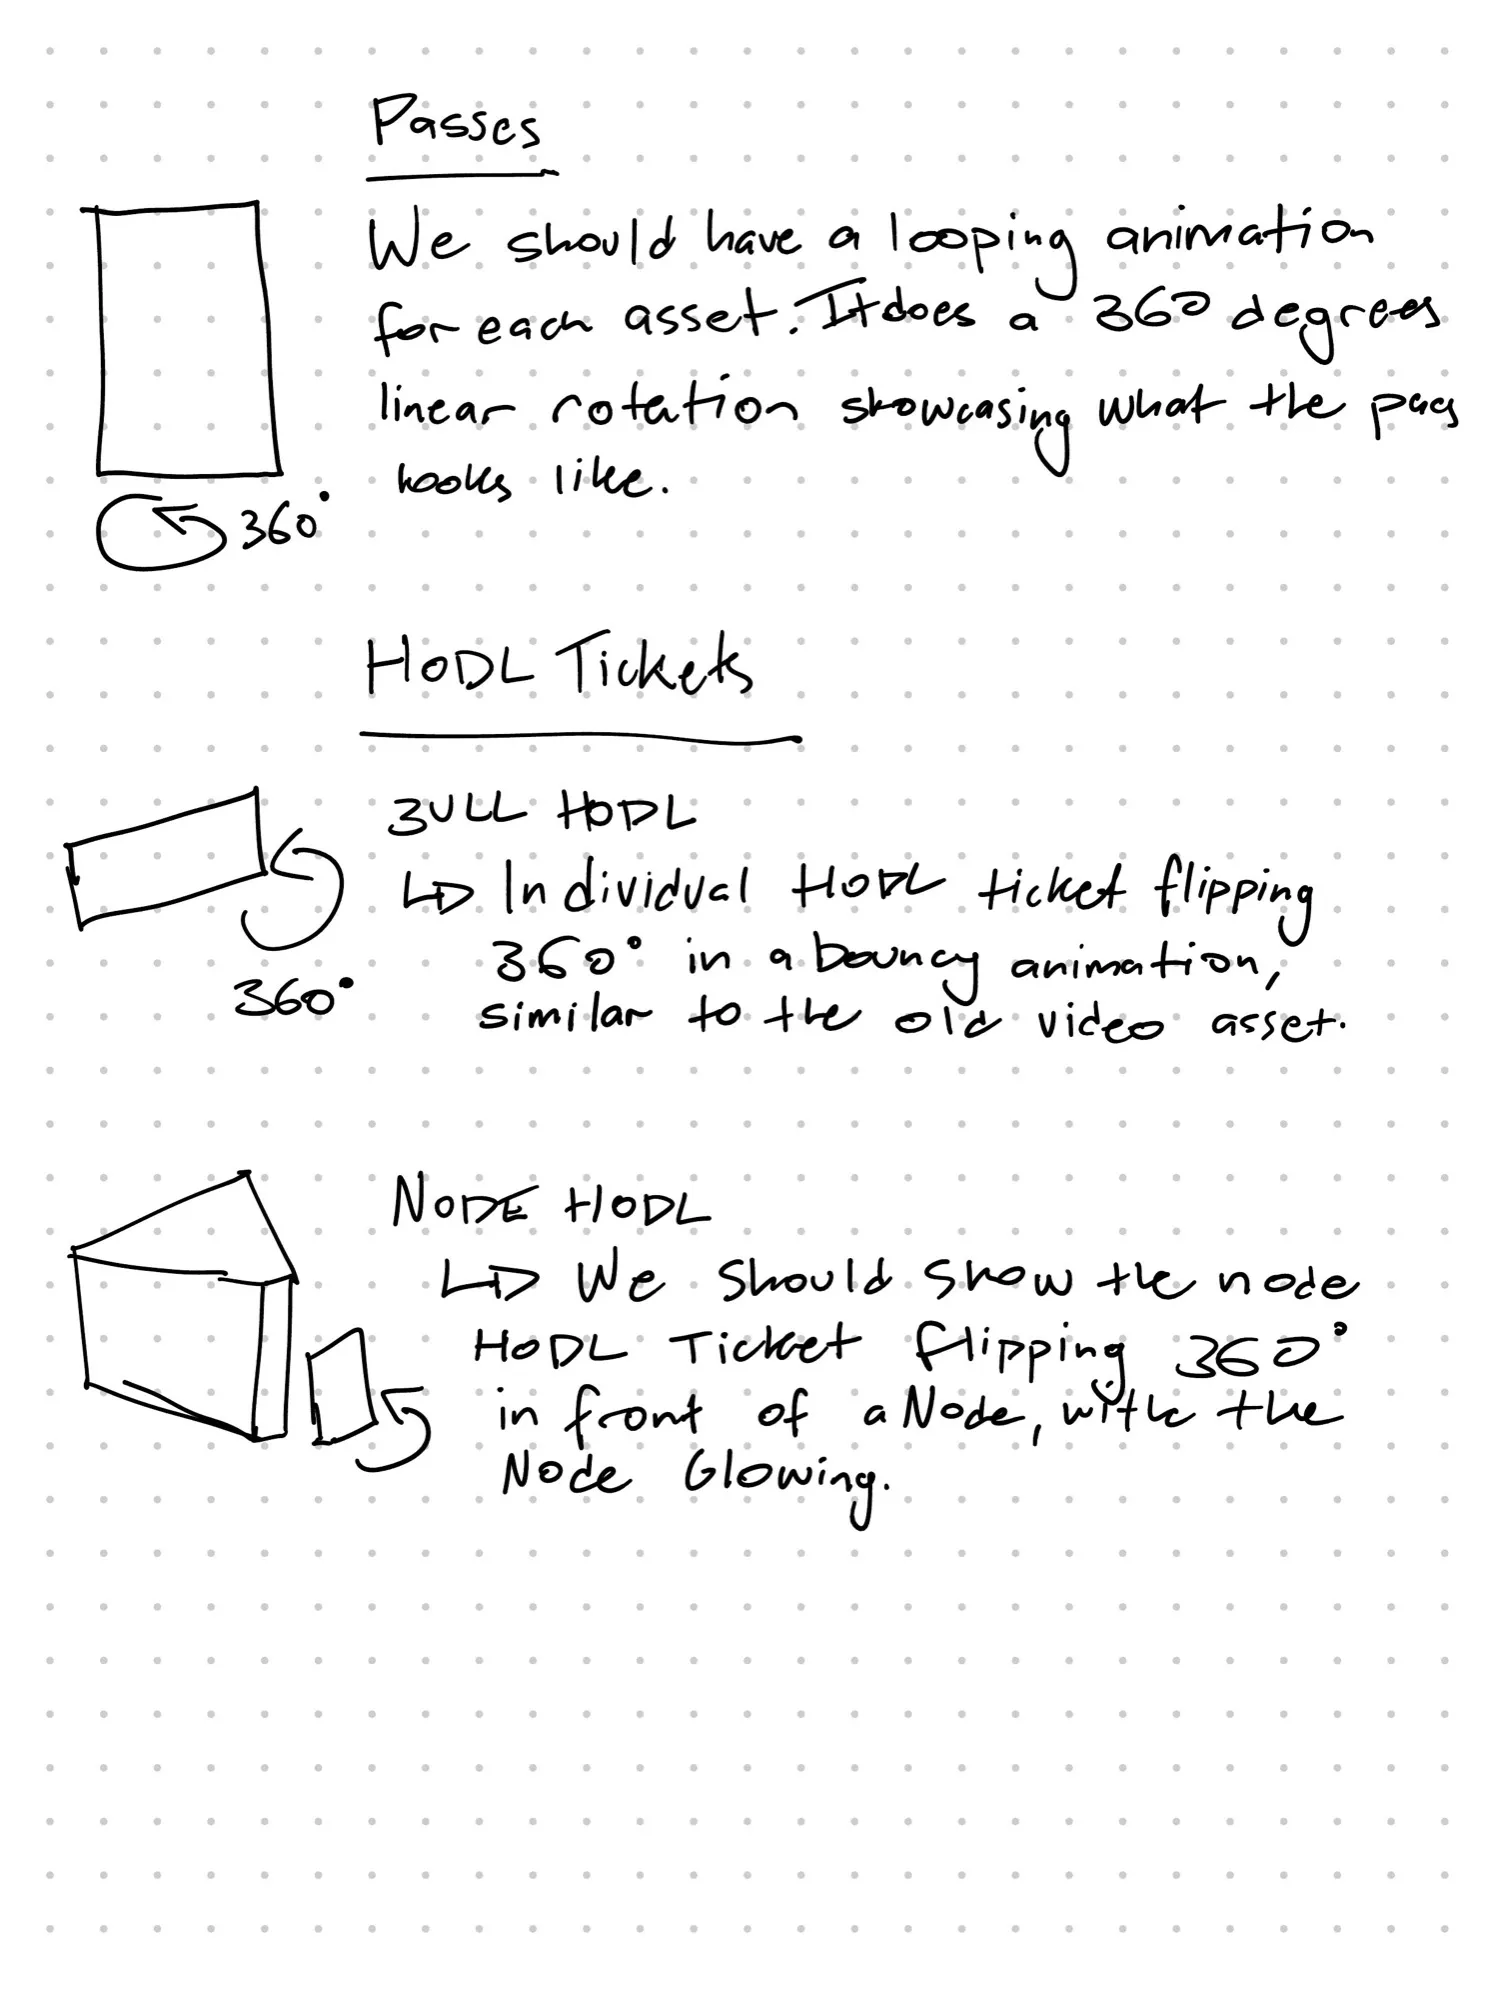 Passes
We should have a looping animation
for each asset. It does a 360 degrees
linear rotation showcasing what the pass
looks like.
360°
HODL Tickets
3ULL HODL
↳ Individual HODL ticket flipping
360° in a bouncy animation,
similar to the old video asset.
360°
NODE HODL
↳ We should show the node
HODL Ticket flipping 360°
in front of a Node, with the
Node Glowing.